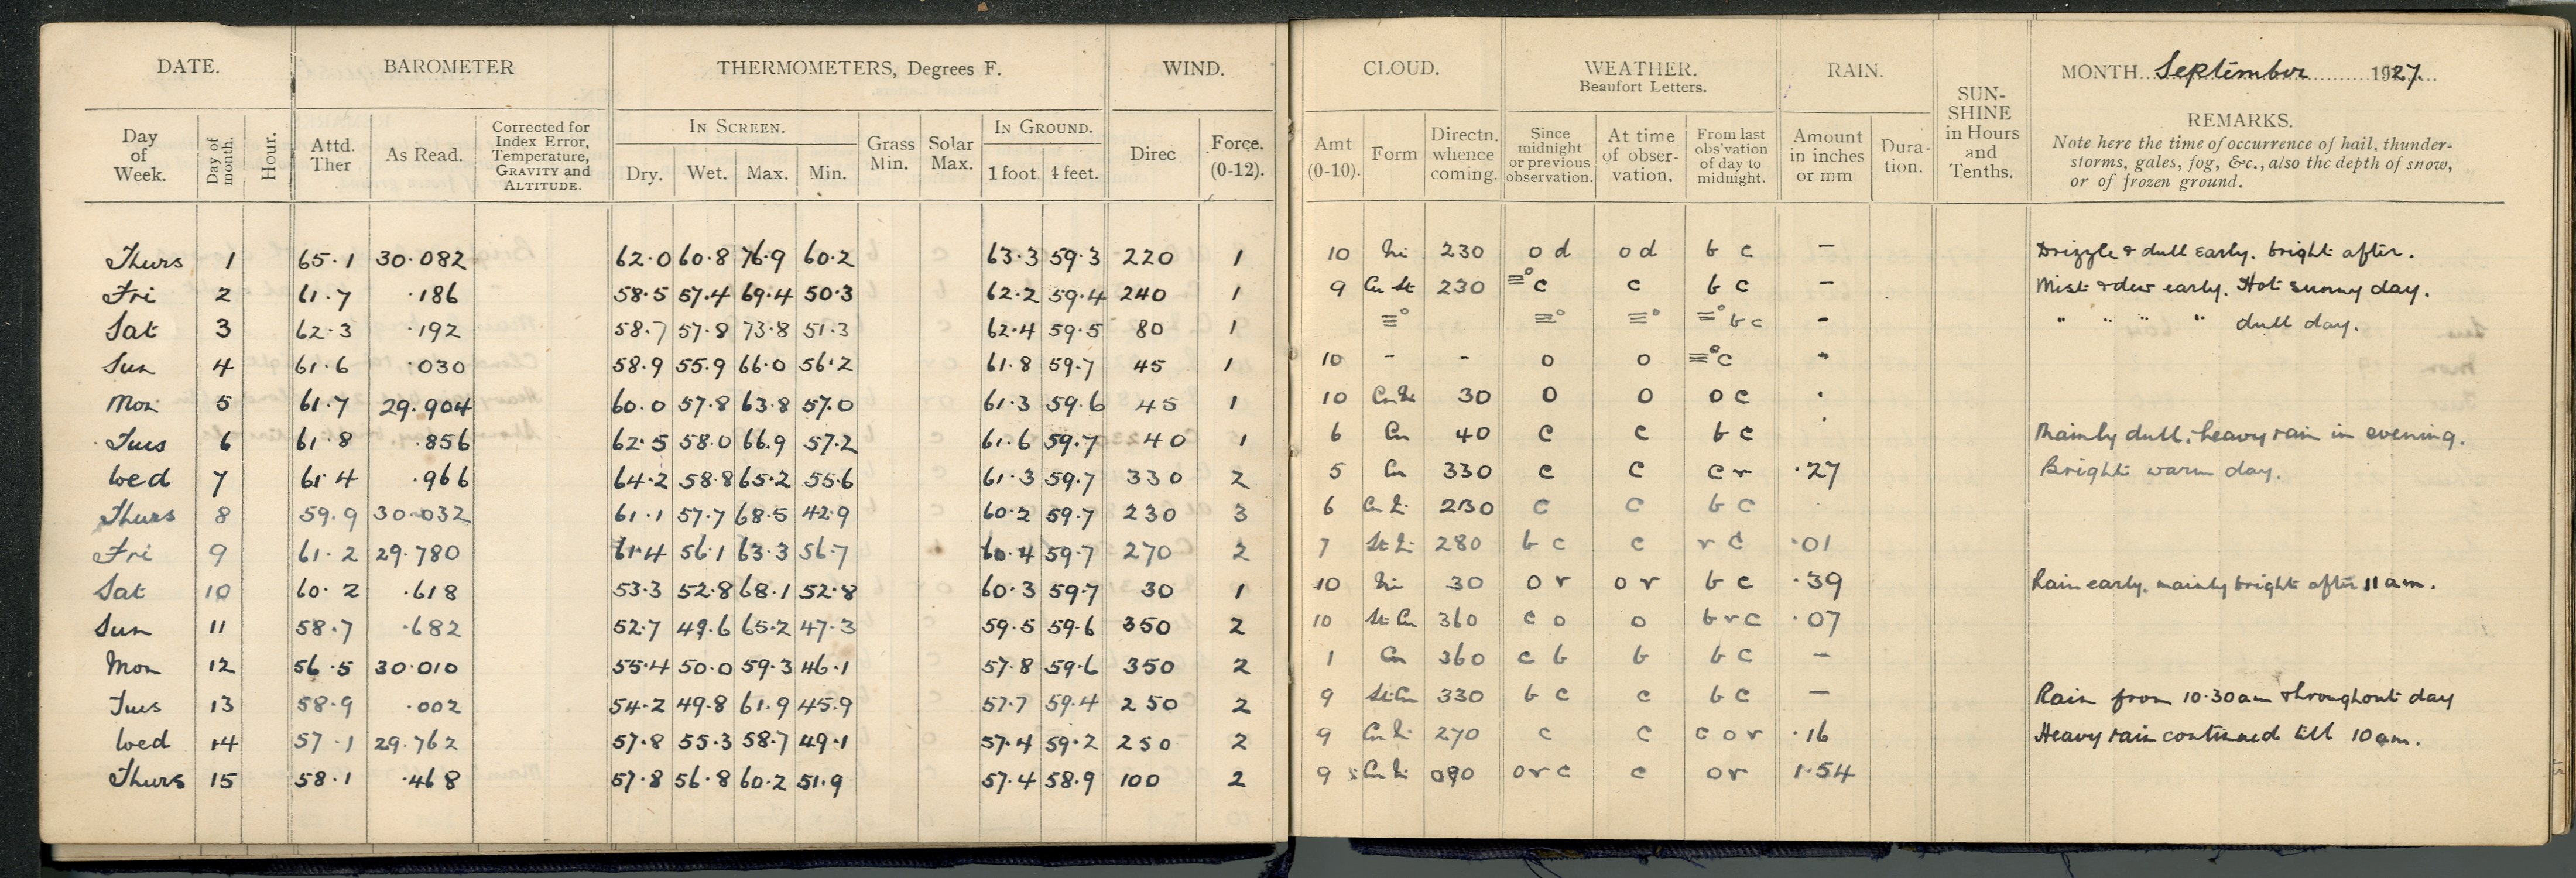 DATE. BAROMETER THERMOMETERS, Degrees F. WIND. CLOUD. WEATHER. Beaufort Letters. RAIN. SUN-SHINE in Hours and Tenths. MONTH September 1927
REMARKS.
Note here the time of occurrence of hail, thunder-
storms, gales, fog, &c., also the depth of snow,
or of frozen ground.
IN SCREEN. IN GROUND.
Day of Week. Day of month. Hour. Attd. Ther As Read. Corrected for Index Error, Temperature, GRAVITY and ALTITUDE. Dry. Wet. Max. Min. Grass Min. Solar Max. 1 foot 4 feet. Direc Force. (0-12). Amt (0-10). Form Directn. whence coming. Since midnight or previous observation. At time of obser-vation. From last obs'vation of day to midnight. Amount in inches or mm Dura-tion.
Thurs 1 65.1 30.082 62.0 60.8 76.9 60.2 63.3 59.3 220 1 10 Ni 230 o d o d b c — Drizzle & dull early. bright after.
Fri 2 61.7 .186 58.5 57.4 69.4 50.3 62.2 59.4 240 1 9 Cu St 230 ≡° c c b c — Mist & dew early. Hot sunny day.
Sat 3 62.3 .192 58.7 57.8 73.8 51.3 62.4 59.5 80 1 ≡° ≡° ≡° =° b c - " " " " dull day.
Sun 4 61.6 .030 58.9 55.9 66.0 56.2 61.8 59.7 45 1 10 - - o o ≡° c -
Mon 5 61.7 29.904 60.0 57.8 63.8 57.0 61.3 59.6 45 1 10 Cu Ni 30 o o o c .
Tues 6 61.8 .856 62.5 58.0 66.9 57.2 61.6 59.7 40 1 6 Cu 40 c c b c Mainly dull, heavy rain in evening.
Wed 7 61.4 .966 64.2 58.8 65.2 55.6 61.3 59.7 330 2 5 Cu 330 c c c r .27 Bright warm day.
Thurs 8 59.9 30.032 61.1 57.7 68.5 42.9 60.2 59.7 230 3 6 Cu Ni 230 c c b c
Fri 9 61.2 29.780 61.4 56.1 63.3 56.7 60.4 59.7 270 2 7 St Ni 280 b c c r c .01
Sat 10 60.2 .618 53.3 52.8 68.1 52.8 60.3 59.7 30 1 10 Ni 30 o r o r b c .39 Rain early. mainly bright after 11 am.
Sun 11 58.7 .682 52.7 49.6 65.2 47.3 59.5 59.6 350 2 10 St Cu 360 c o o b r c .07
Mon 12 56.5 30.010 55.4 50.0 59.3 46.1 57.8 59.6 350 2 1 Cu 360 c b b b c —
Tues 13 58.9 .002 54.2 49.8 61.9 45.9 57.7 59.4 250 2 9 St Cu 330 b c c b c — Rain from 10.30am throughout day
Wed 14 57.1 29.762 57.8 55.3 58.7 49.1 57.4 59.2 250 2 9 Cu Ni 270 c c c o r .16 Heavy rain continued till 10am.
Thurs 15 58.1 .468 57.8 56.8 60.2 51.9 57.4 58.9 100 2 9 Cu Ni 090 o r c c o r 1.54